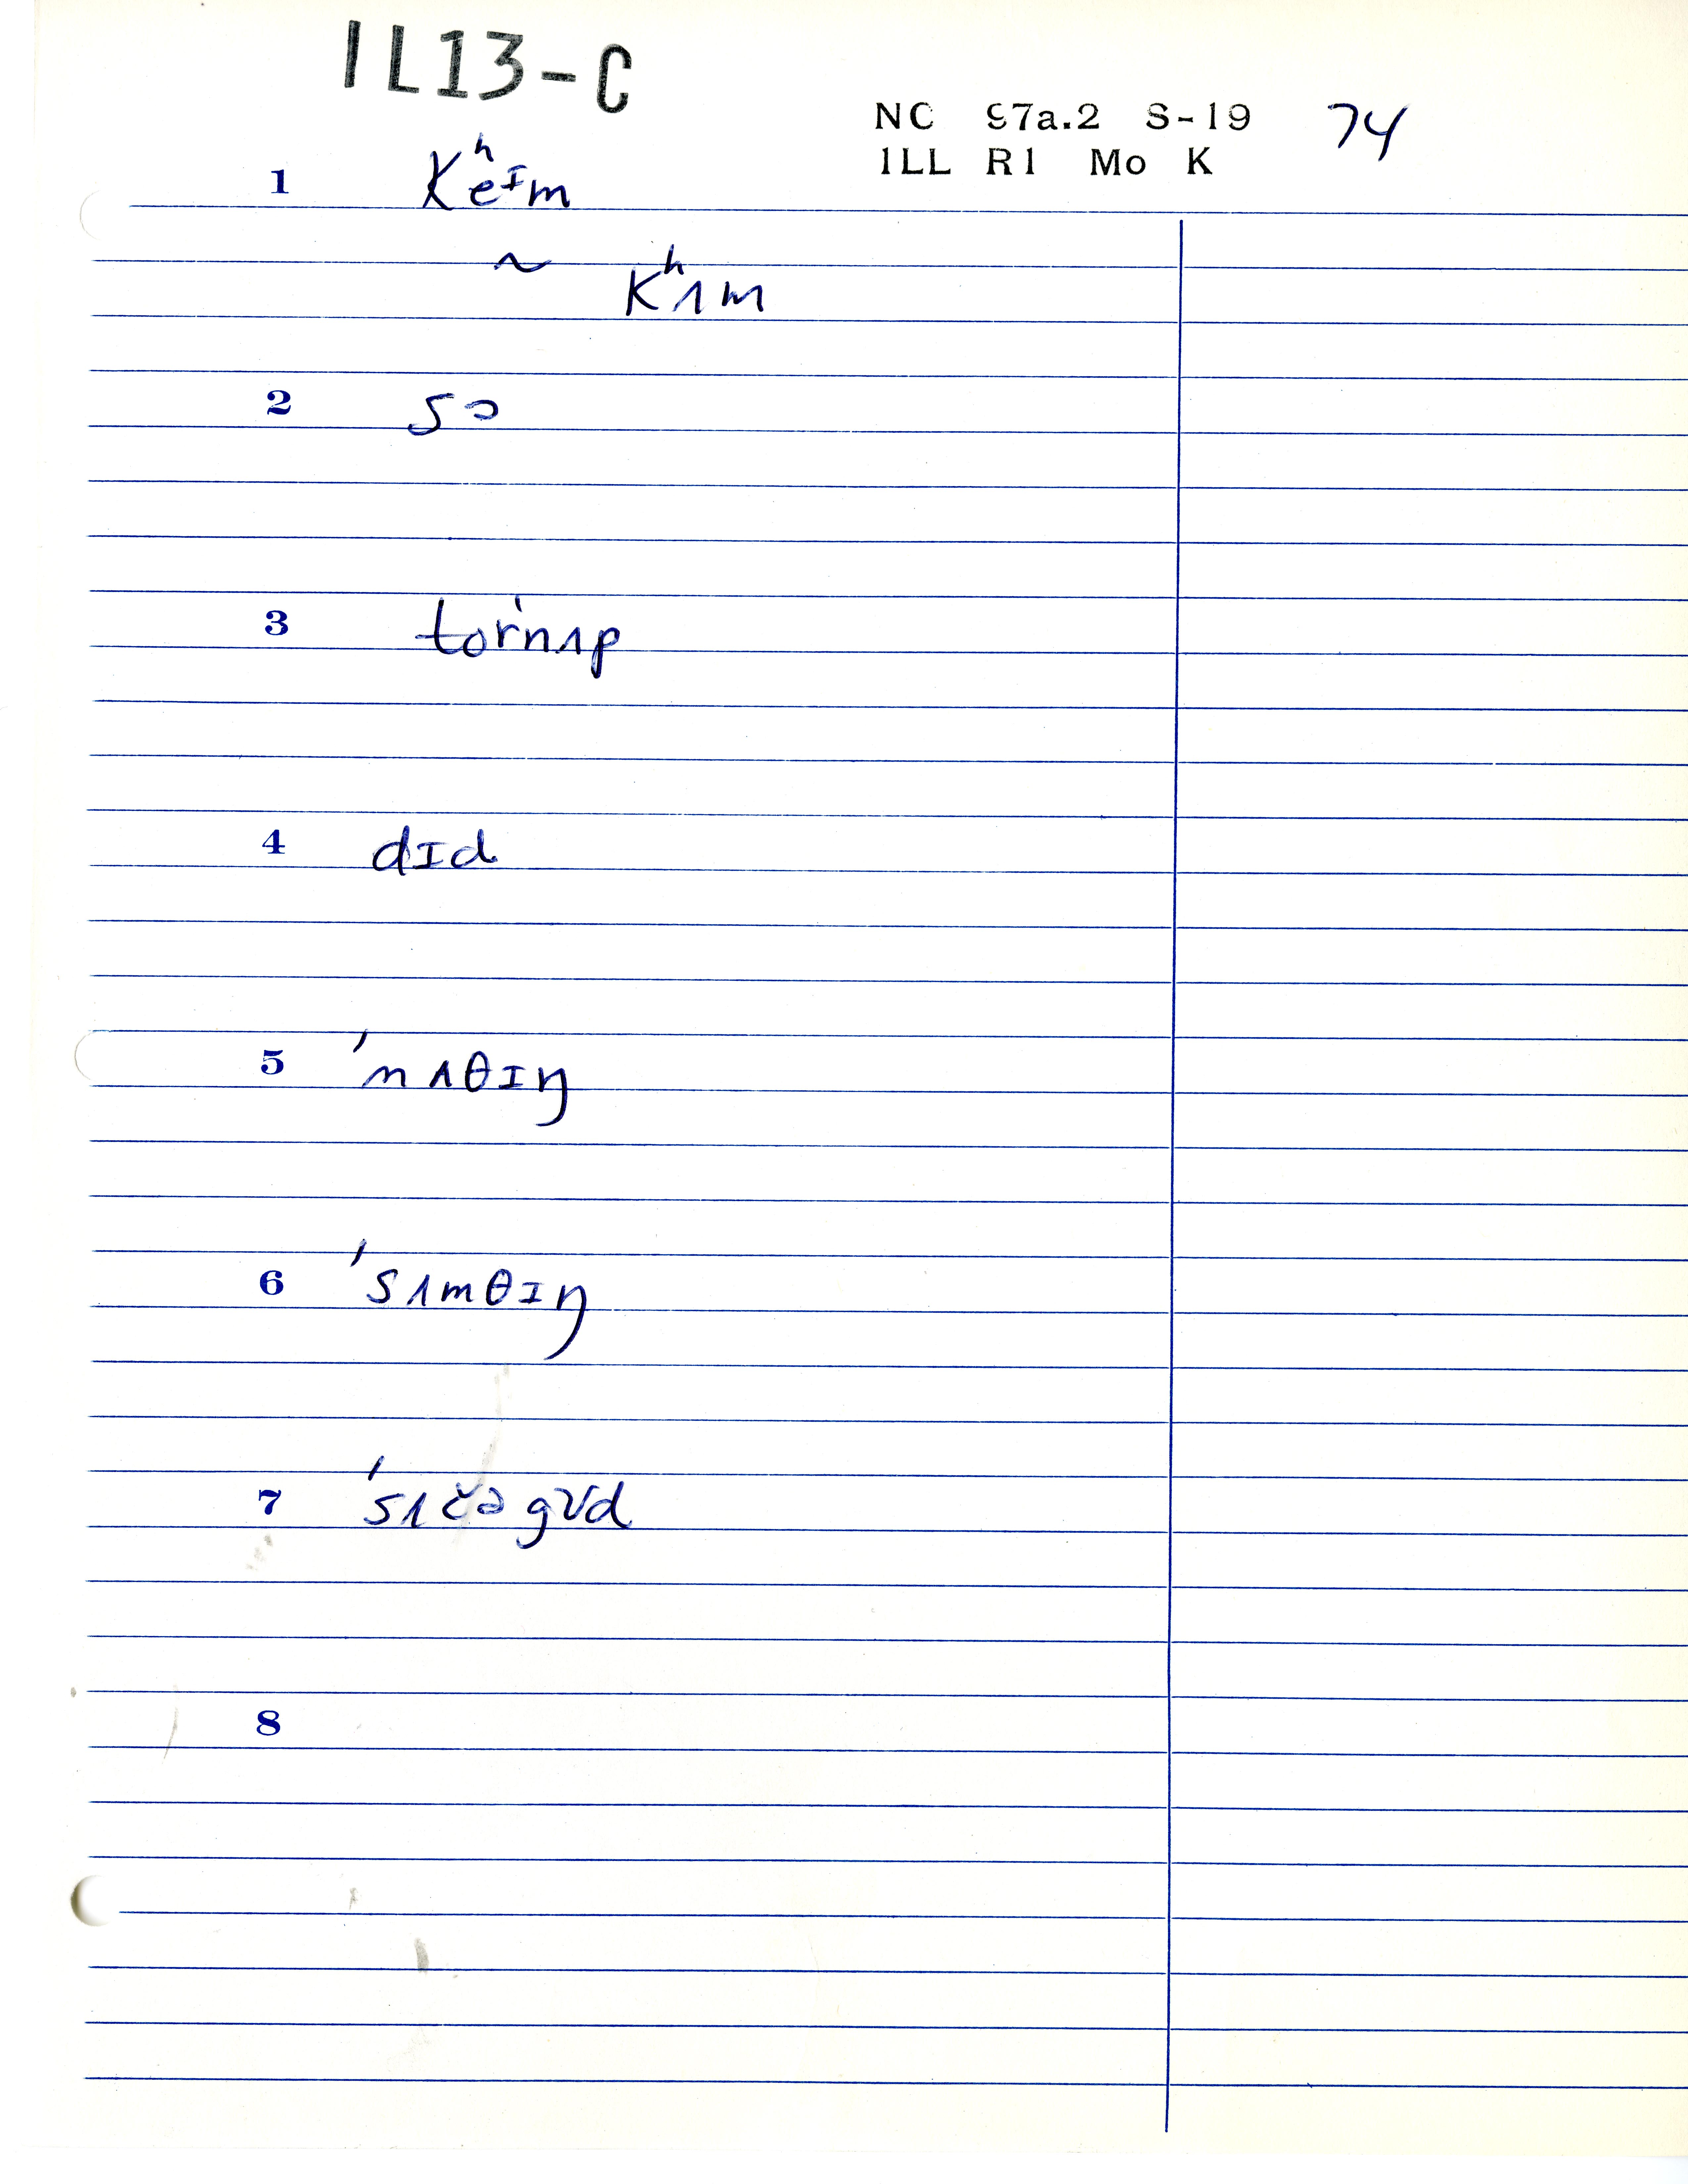 IL13-C
NC 97a.2 S-19 74
ILL R1 Mo K
1 Kʰeᴵm
~ Kʰʌm
2 sɔ
3 tor'nʌp
4 dɪd
5 'nʌθɪŋ
6 'sʌmθɪŋ
7 'sʌčəgʊd
8